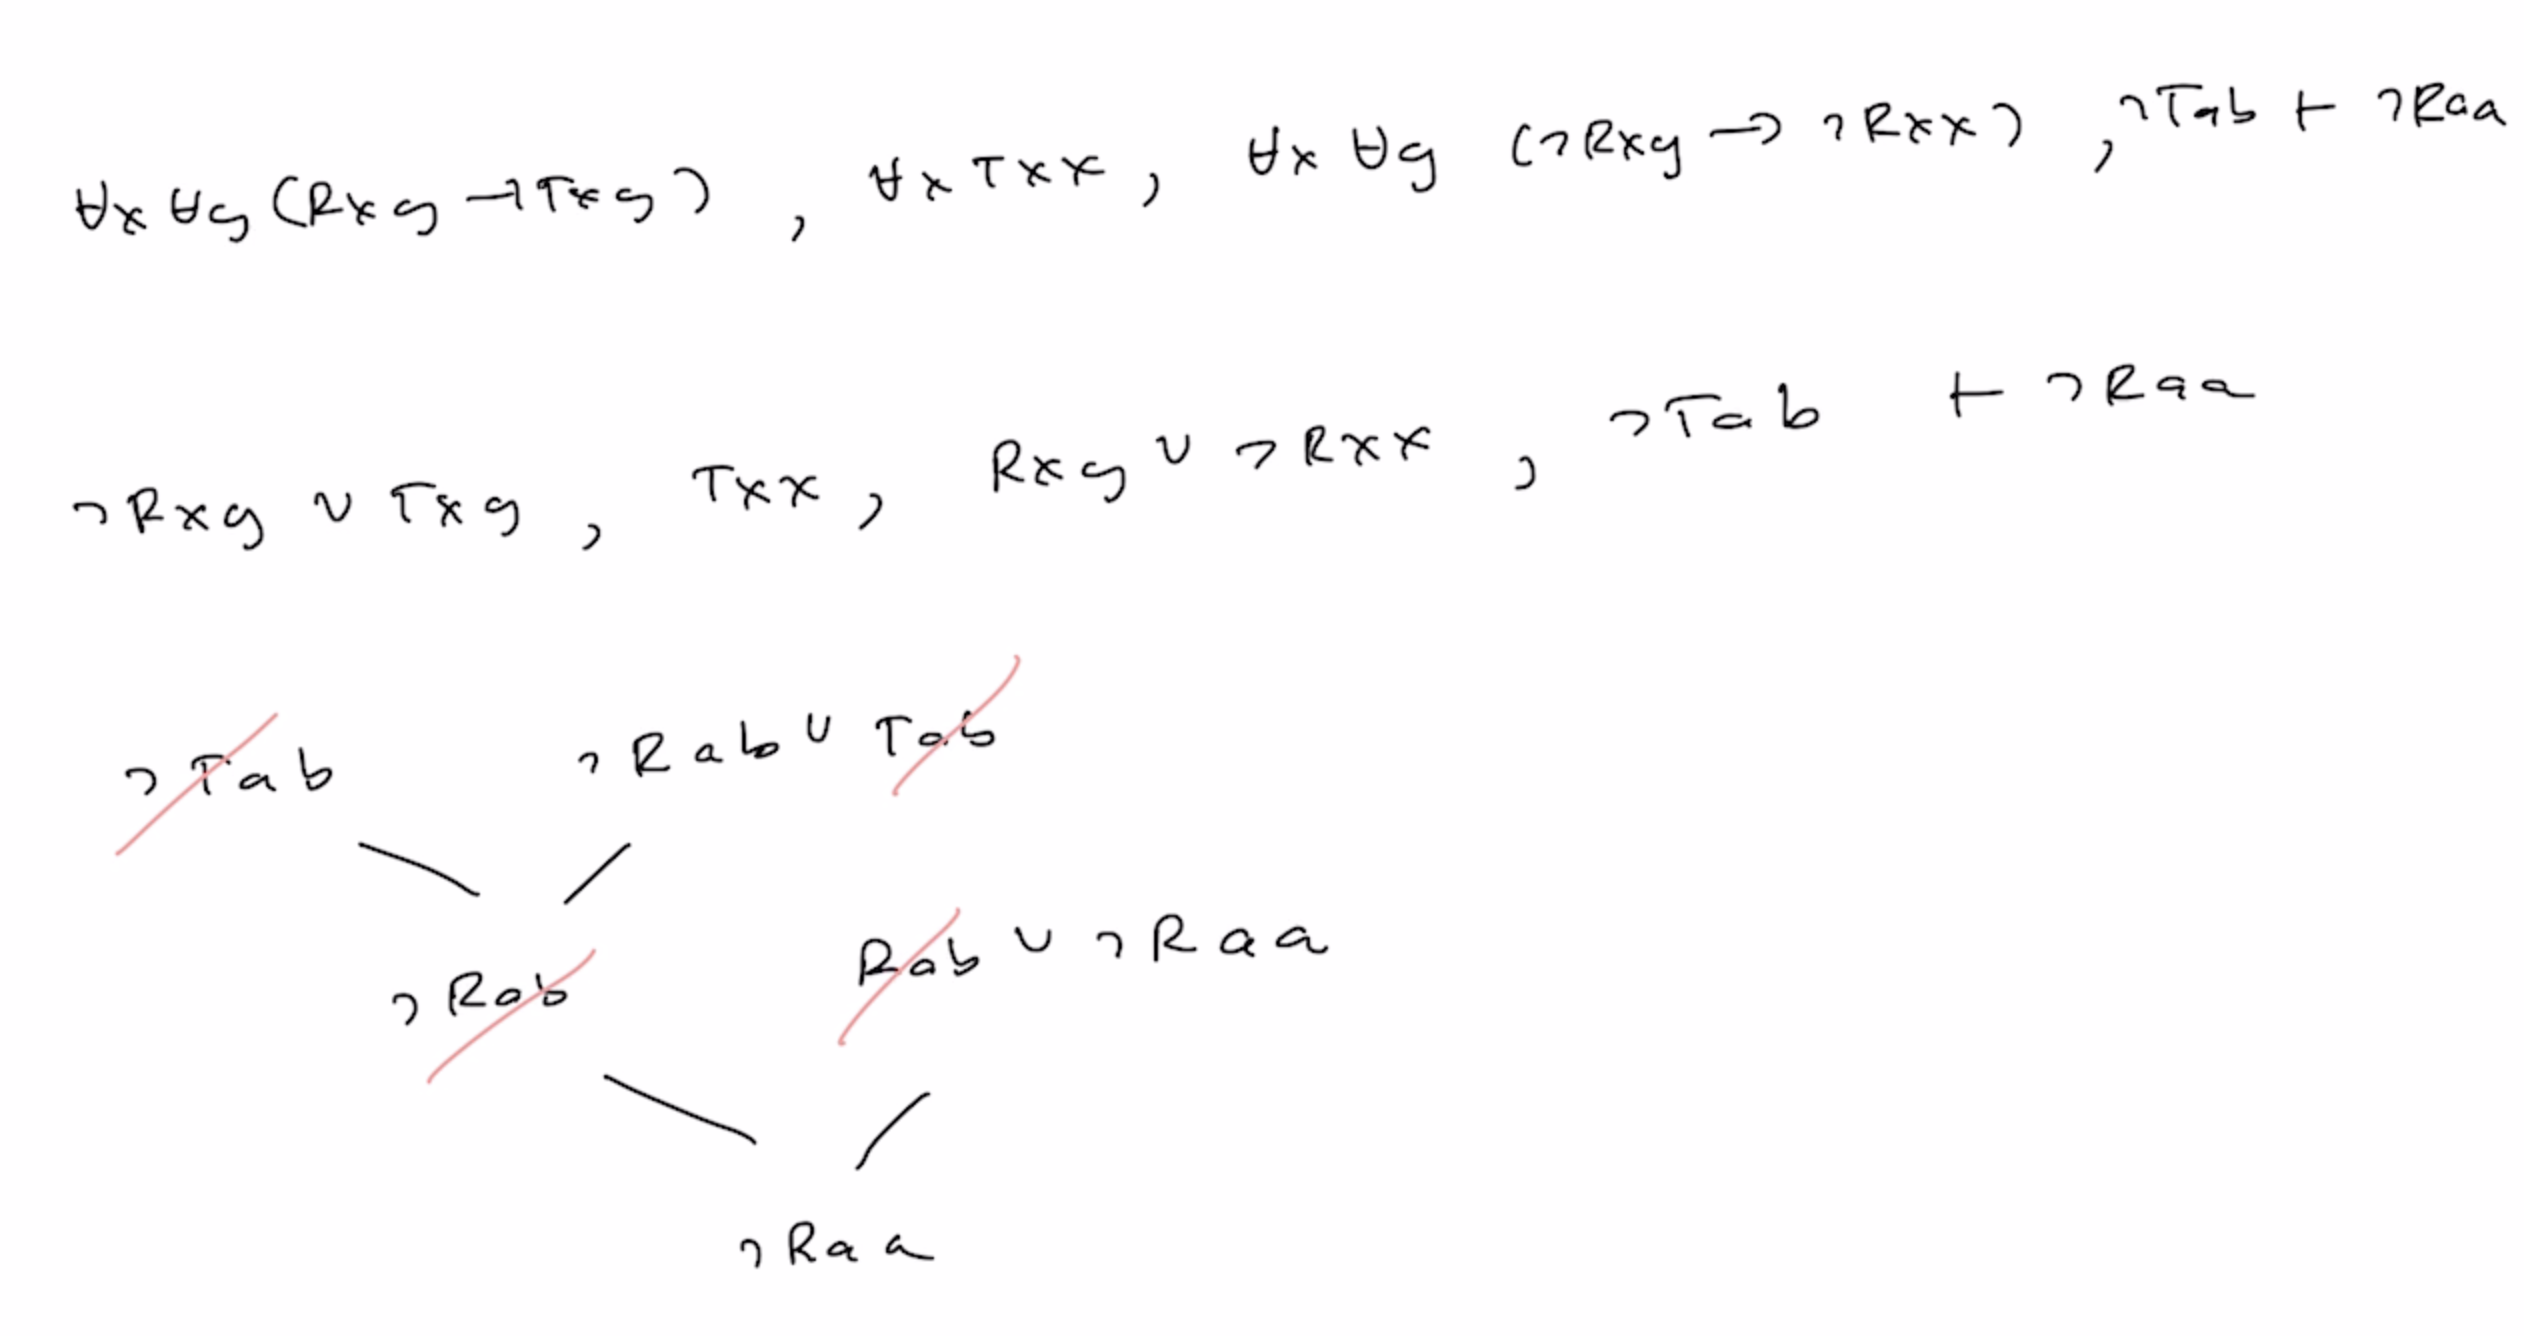 ∀x ∀y (Rxy → Txy) , ∀x Txx , ∀x ∀y (¬Rxy → ¬Rxx) , ¬Tab ⊢ ¬Raa
¬Rxy ∨ Txy , Txx , Rxy ∨ ¬Rxx , ¬Tab ⊢ ¬Raa
¬Tab ¬Rab ∨ Tab
¬Rab Rab ∨ ¬Raa
¬Raa